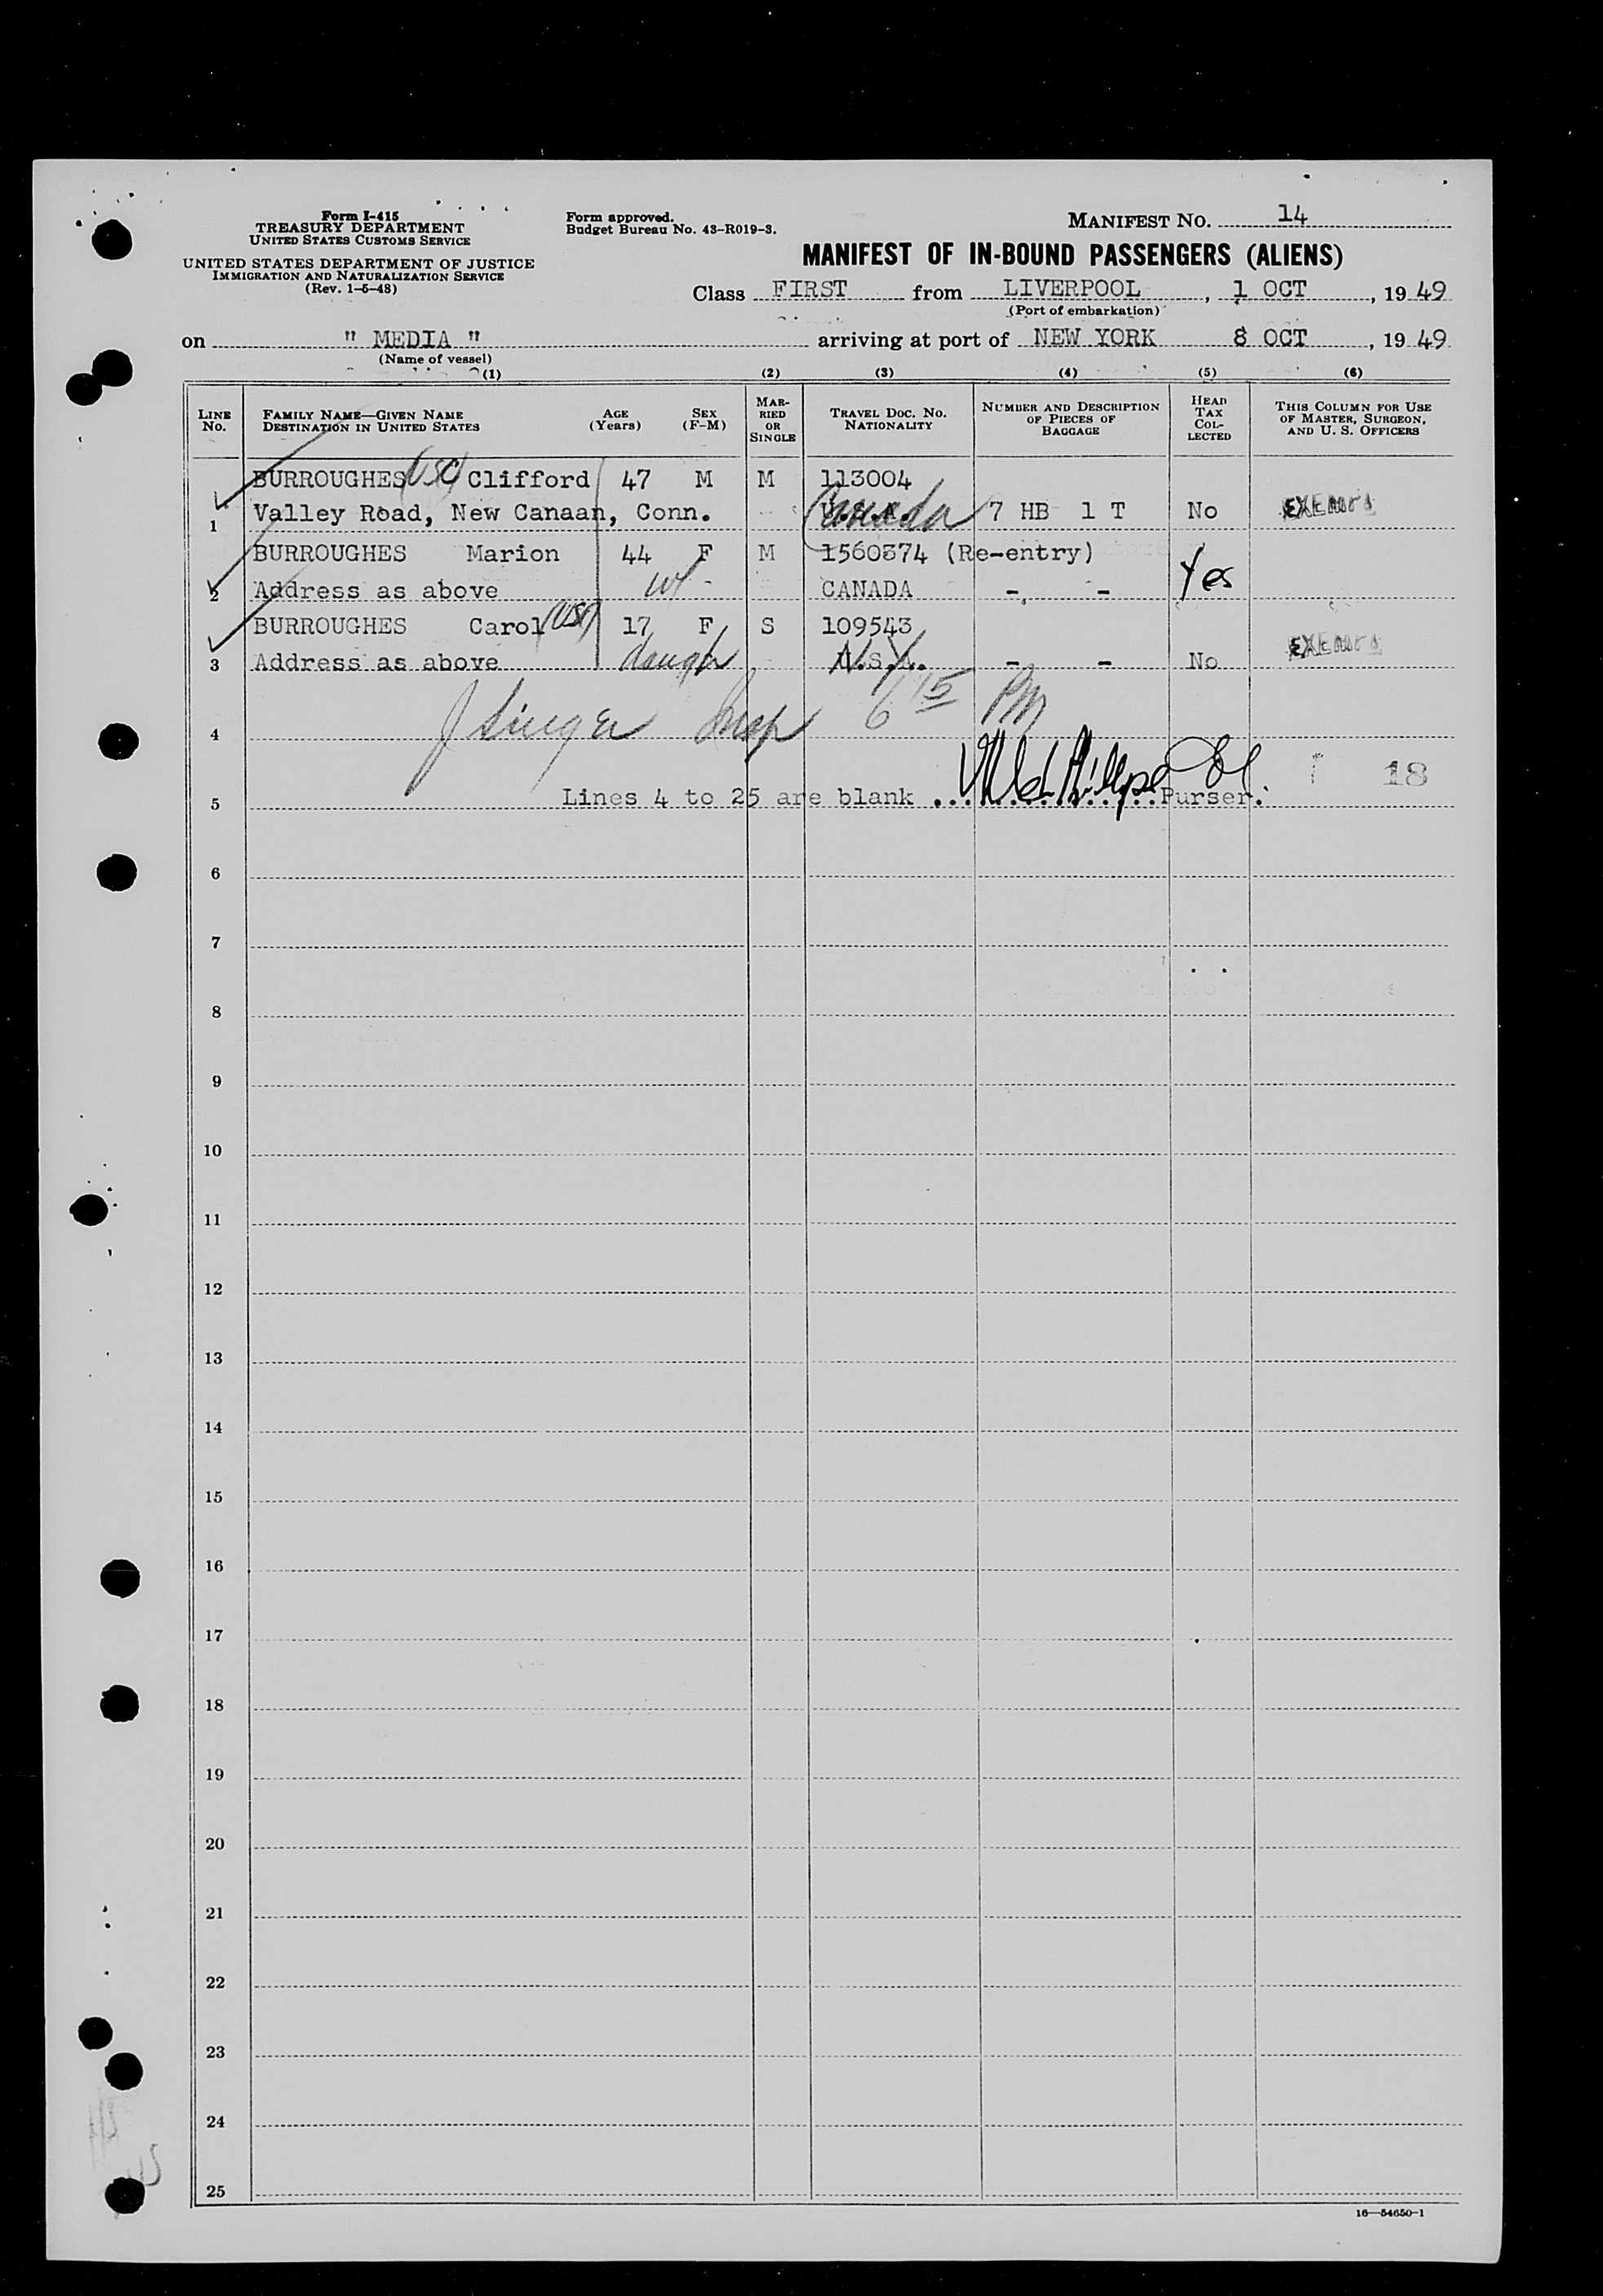 Form I-415
TREASURY DEPARTMENT
UNITED STATES CUSTOMS SERVICE
UNITED STATES DEPARTMENT OF JUSTICE
IMMIGRATION AND NATURALIZATION SERVICE
(Rev. 1-5-48)
Form approved.
Budget Bureau No. 43-R019-3.
MANIFEST NO. 14
MANIFEST OF IN-BOUND PASSENGERS (ALIENS)
Class FIRST from LIVERPOOL, 1 OCT, 19 49
(Port of embarkation)
on " MEDIA " arriving at port of NEW YORK 8 OCT, 19 49
(Name of vessel)
(1) (2) (3) (4) (5) (6)
LINE No. FAMILY NAME—GIVEN NAME DESTINATION IN UNITED STATES AGE (Years) SEX (F-M) MARRIED OR SINGLE TRAVEL DOC. NO. NATIONALITY NUMBER AND DESCRIPTION OF PIECES OF BAGGAGE HEAD TAX COLLECTED THIS COLUMN FOR USE OF MASTER, SURGEON, AND U. S. OFFICERS
BURROUGHES (USC) Clifford 47 M M 113004
1 Valley Road, New Canaan, Conn. Canada 7 HB 1 T No EXEMPT
BURROUGHES Marion 44 F M 1560374 (Re-entry)
2 Address as above wf - CANADA - - Yes
BURROUGHES Carol 17 F S 109543
3 Address as above daugh U.S.A. - - No EXEMPT
J Singer Insp 6 15 PM
4
5 Lines 4 to 25 are blank ................Purser. 18
6
7
8
9
10
11
12
13
14
15
16
17
18
19
20
21
22
23
24
25
16—54650-1